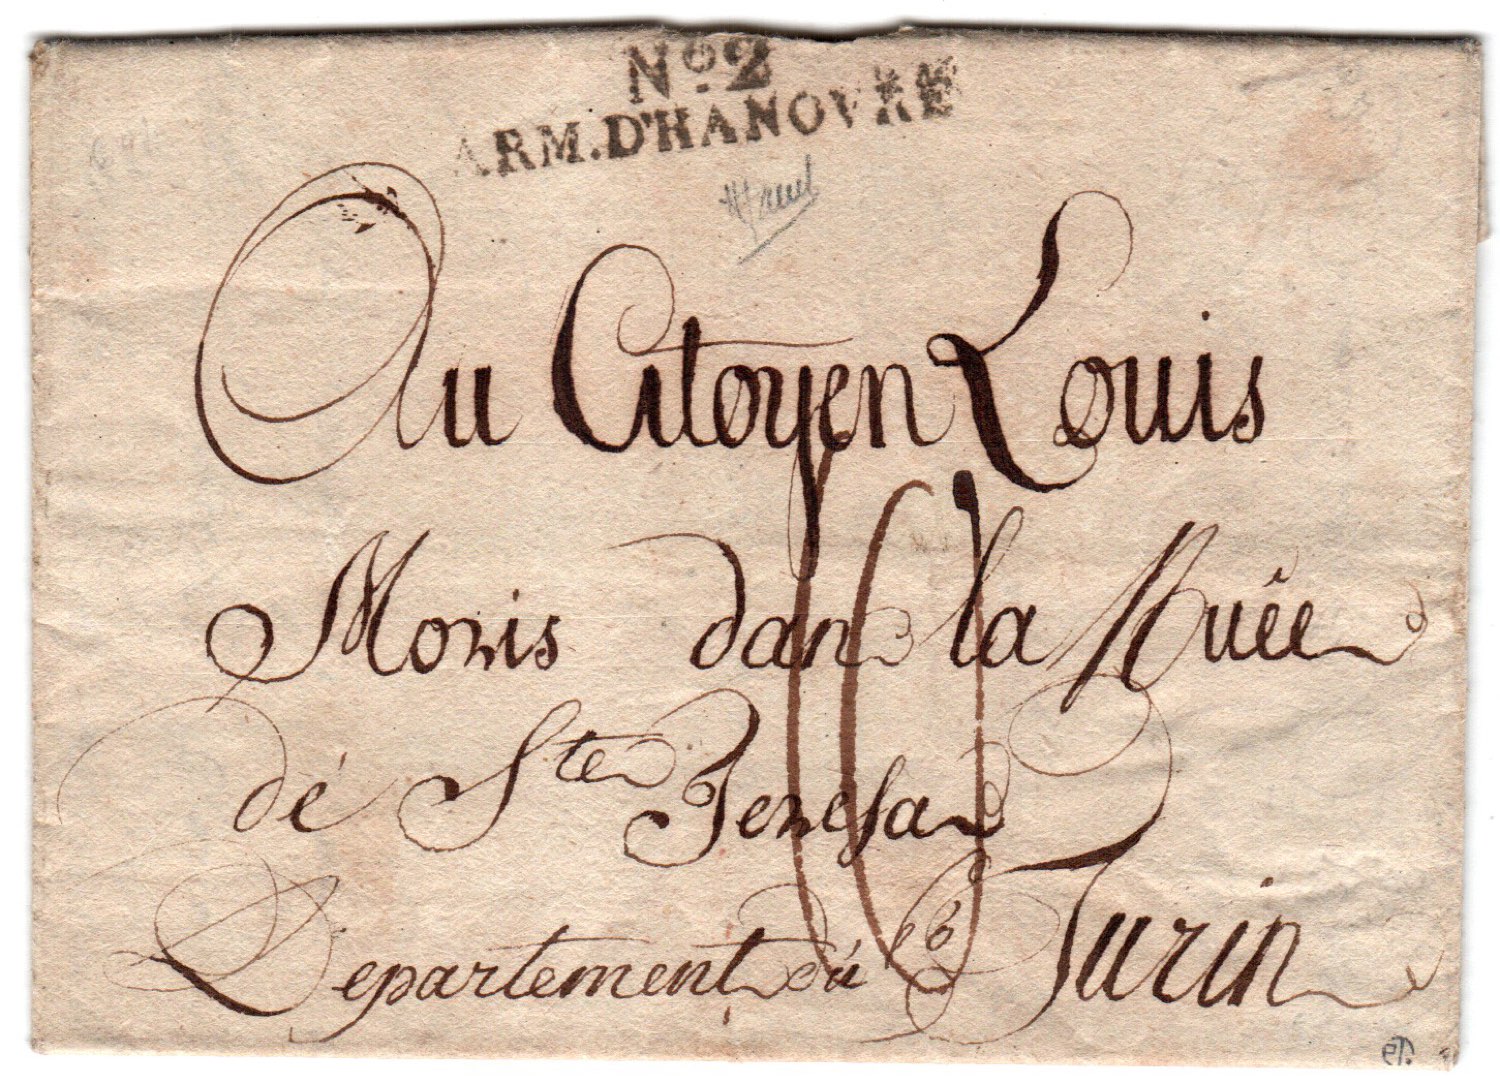 No. 2
ARM. D'HANOVRE
Au Citoyen Louis
Moris dans la Ruëe
dé Ste Teresa
Departement dú Turin
10